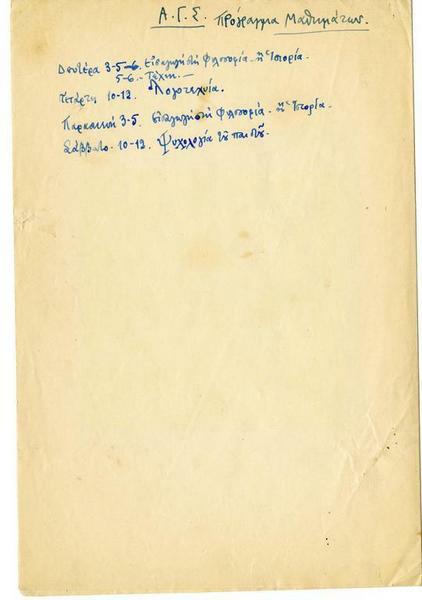 Α.Γ.Σ. Πρόγραμμα Μαθημάτων.
Δευτέρα 3-5 Εἰσαγωγή στή Φιλοσοφία ἤ Ἱστορία.
5-6 - Τέχνη. -
Τετάρτη 10-12. Λογοτεχνία.
Παρασκευή 3-5. Εἰσαγωγή στή Φιλοσοφία. ἤ Ἱστορία.
Σάββατο. 10-12. Ψυχολογία τοῦ παιδιοῦ.